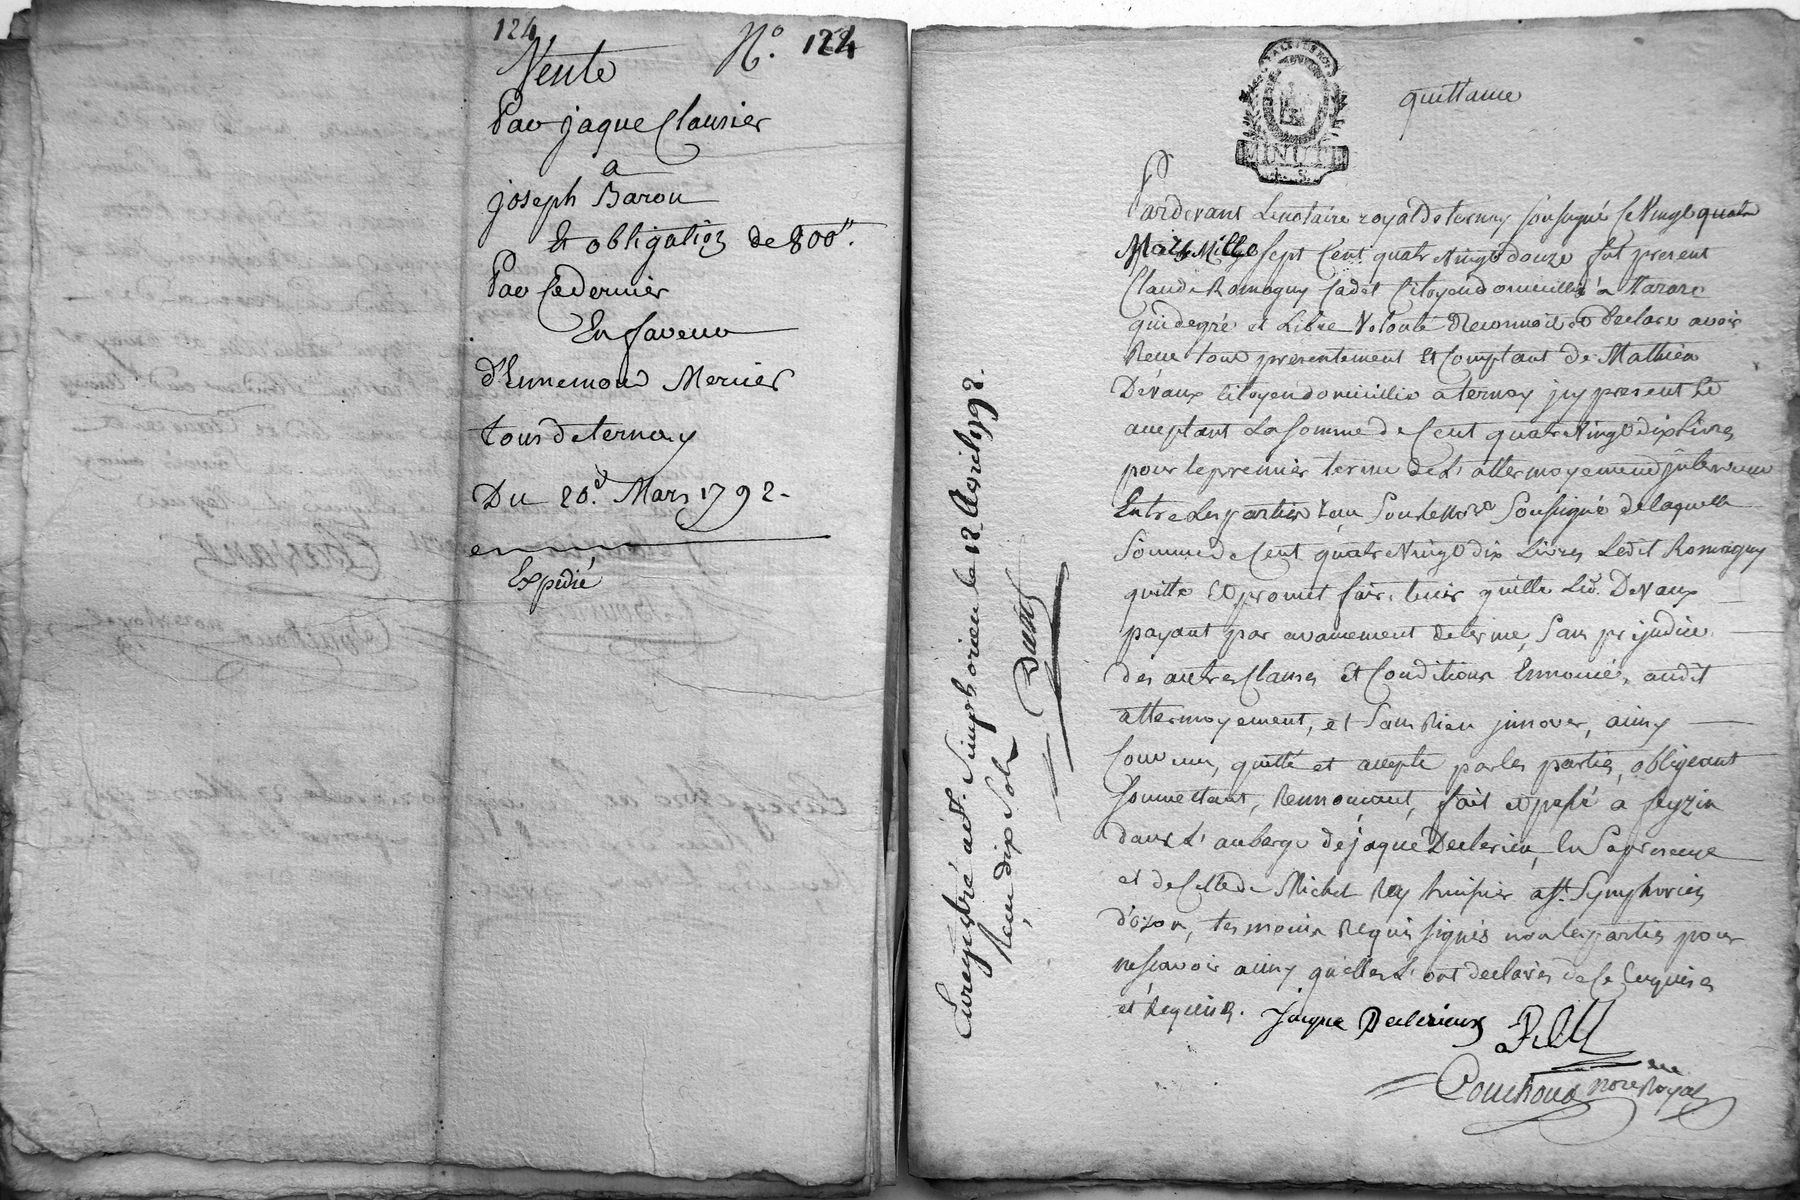 124
Vente N.° 124
Par jaque Clausier
a
joseph Baron
Et obligation de 800ll.
Par Ce dernier
En faveur
d'Ennemond Mercier
tous de ternay
Du 20.e Mars 1792.
Expedié
MINUTE
quittance
Pardevant Le notaire royal de ternay soussigné Ce Vingt quatre
Mars Mille sept Cent quatre Vingt douze fut present
Claude Romagny Cadet Citoyen domicillié a tarare
qui de gré et Libre Volonté Reconnoit et Declare avoir
Receu tout presentement Et Comptant de Mathieu
Devaux Citoyen domicillié a ternay jcy present Et
aceptant La somme de Cent quatre Vingt dix Livres
pour le premier terme de L'attermoyement jntervenu
Entre Les parties Receu Soussigné de laquelle
Somme de Cent quatre Vingt dix Livres Ledit Romagny
quitte Et promet faire tenir quitte Led. Devaux
payant par avancement de terme, sans prejudice
des autres Clauses et Conditions Ennoncés, audit
attermoyement, et sans Rien jnnover, ainsy
Convenu, quitté et accepté par les parties, obligeant
Soumettant, Rennonçant, fait et passé a feyzin
dans L'auberge de jaque Declerieu, En sa presence
et de Celle de Michel Rey huissier a St. Symphorien
d'ozon, temoins Requis signés non les parties pour
ne scavoir ainsy qu'elles L'ont declarés de Ce Enquises
et Requises. Jaque Declerieux
Couchoud nore Royal
Enregistré a St. Simphorien le 12 Avril 1792.
Reçu dix sols